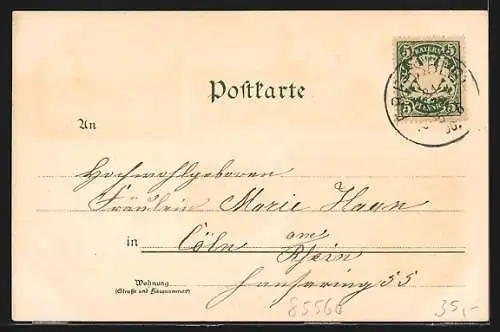 5 BAYERN 5
5 PFENNIG 5
Postkarte
An
Hochwohlgeboren
Fräulein Marie Haan
in Cöln am Rhein
Wohnung
(Straße und Hausnummer)
Hansaring 55
85560
35,-